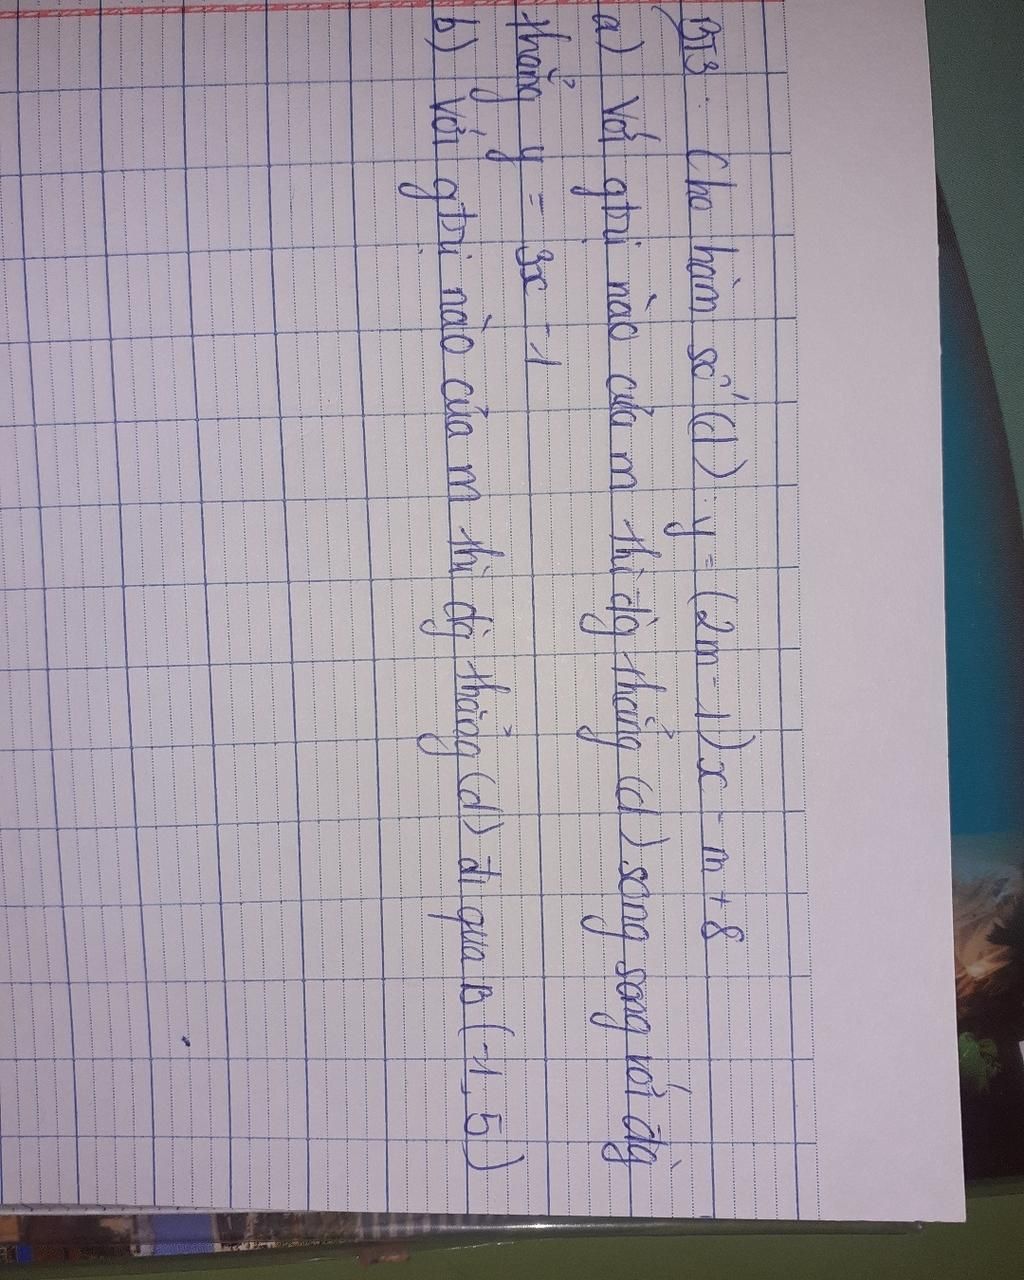 BT3: Cho hàm số (d) : y = (2m - 1)x - m + 8
a) Với gtrị nào của m thì đg thẳng (d) song song với đg
thẳng y = 3x - 1
b) Với gtrị nào của m thì đg thẳng (d) đi qua B (-1, 5)